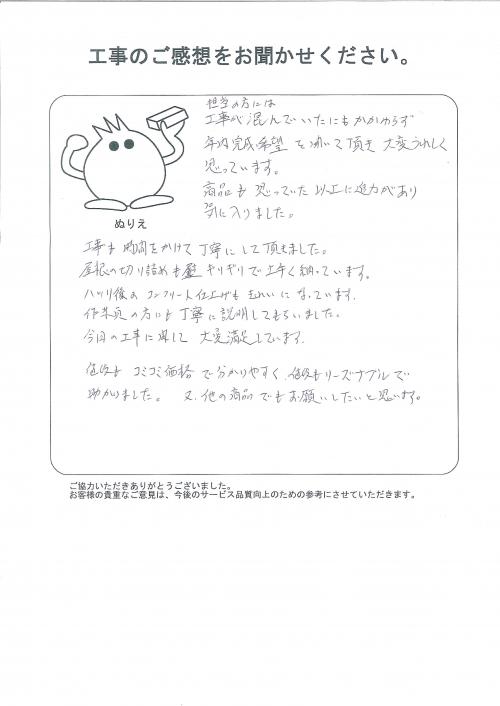 工事のご感想をお聞かせください。
担当の方には
工事が混んでいたにもかかわらず
年内完成希望を聞いて頂き大変うれしく
思っています。
商品も思っていた以上に迫力があり
気に入りました。
ぬりえ
工事は時間をかけて丁寧にして頂きました。
屋根の切り詰めも壁ギリギリで上手く納っています。
ハツリ後のコンクリート仕上げもきれいになっています。
作業員の方にも丁寧に説明してもらいました。
今回の工事に関して大変満足しています。
値段もコミコミ価格で分かりやすく、値段もリーズナブルで
助かりました。又、他の商品でもお願いしたいと思います。
ご協力いただきありがとうございました。
お客様の貴重なご意見は、今後のサービス品質向上のための参考にさせていただきます。